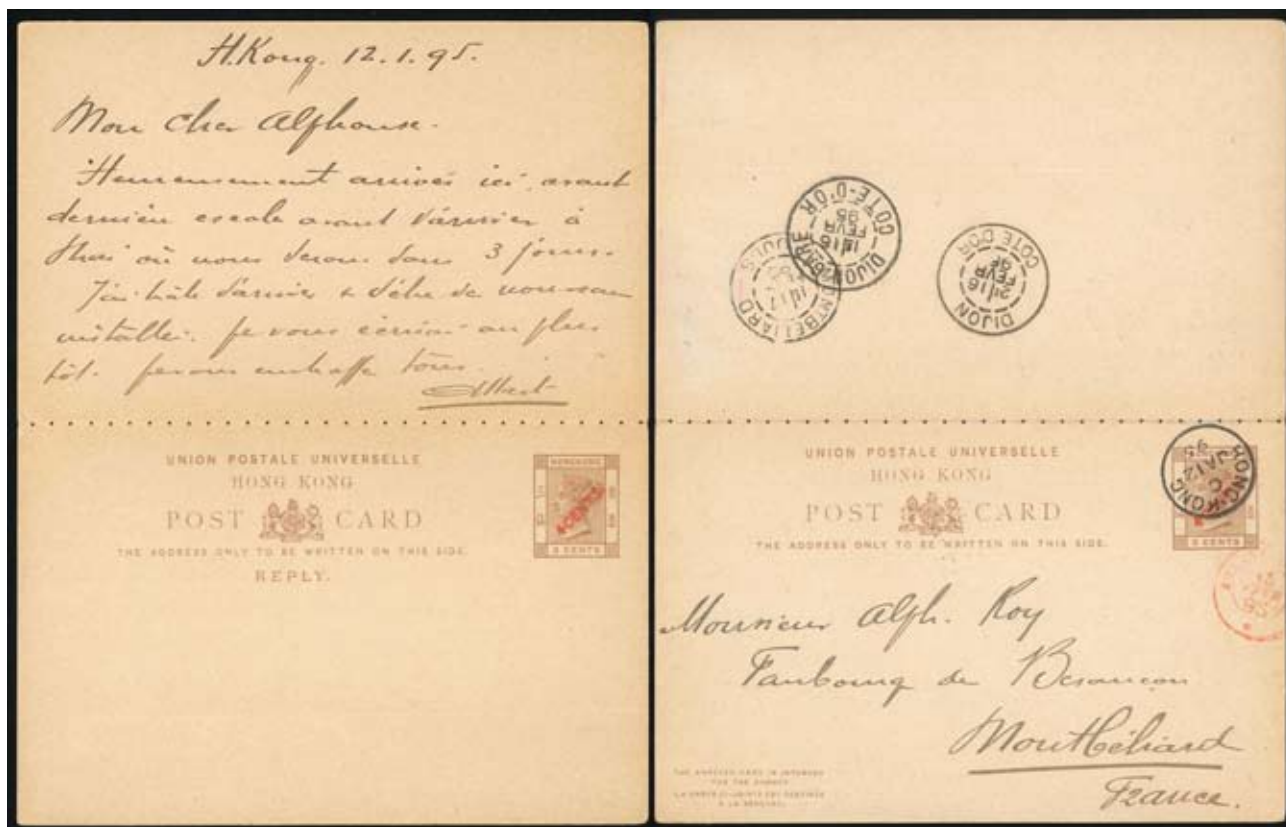 H.Kong. 12.1.95.
Mon cher Alphonse.
Heureusement arrivés ici, avant
dernière escale avant d'arriver à
où nous serons dans 3 jours.
J'ai hâte d'arriver & d'être de nouveau
installé. Je vous écrirai au plus
tôt. Je vous embrasse tous.
Albert
UNION POSTALE UNIVERSELLE
HONG KONG
POST CARD
THE ADDRESS ONLY TO BE WRITTEN ON THIS SIDE.
REPLY.
HONG KONG
4 CENTS
3 CENTS
DIJON
COTE-D'OR
16
FEVR
95
MONTBELIARD
DOUBS
17
DIJON
COTE D'OR
16
FEVR
95
UNION POSTALE UNIVERSELLE
HONG KONG
POST CARD
THE ADDRESS ONLY TO BE WRITTEN ON THIS SIDE.
HONG-KONG
C
JA 12
95
3 CENTS
Monsieur Alph. Roy
Faubourg de Besancon
Montbéliard
France.
THE ANNEXED CARD IS INTENDED
FOR THE ANSWER
LA CARTE CI-JOINTE EST DESTINÉE
A LA RÉPONSE